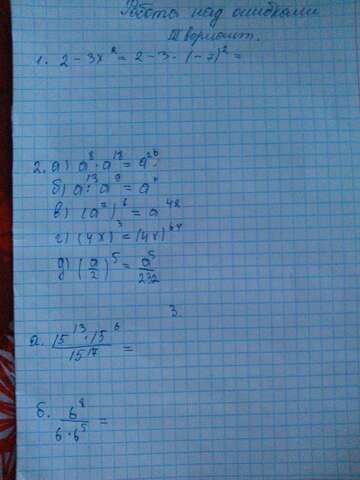 Работа над ошибками
II вариант.
1. 2 - 3x² = 2 - 3 · (-7)² =
2. а) a⁸ · a¹⁸ = a²⁶
б) a¹³ : a⁹ = a⁴
в) (a⁷)⁶ = a⁴²
г) (4x)³ =
д) (a/2)⁵ = a⁵/232
3.
а. 15¹³ · 15⁶ / 15¹⁷ =
б. 6⁸ / 6 · 6⁵ =